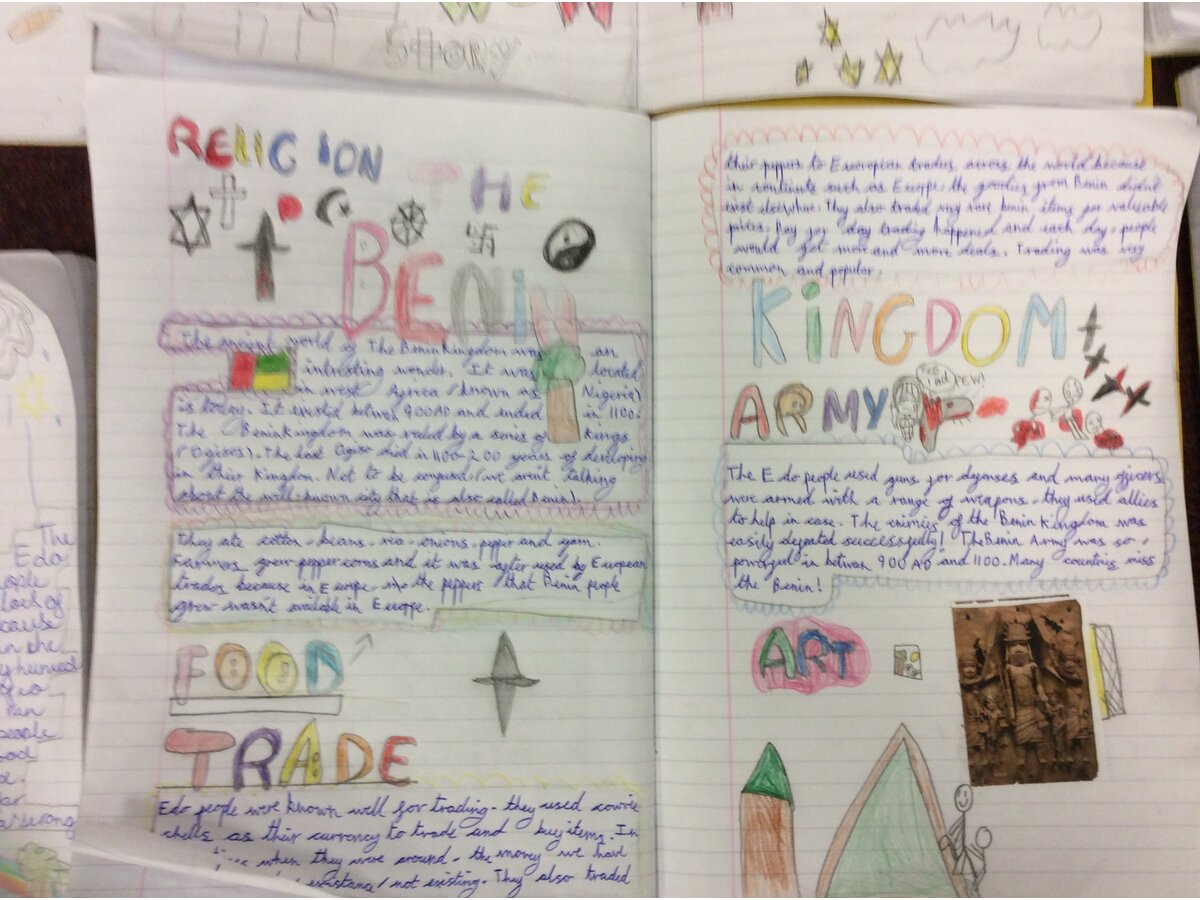 story
RELIGION
THE
BENIN
The ancient world of The Benin Kingdom was an
interesting wonder. It was located
in west Africa (known as Nigeria)
is today. It existed betwen 900AD and ended in 1100.
The Benin Kingdom was ruled by a series of kings
(Ogises). The last Ogiso died in 1100-200 years of developing
in their Kingdom. Not to be confused (we aren't talking
about the well-known city that is also called Benin).
They ate cotton, beans, rice, onions, pepper and yam.
Farmers grew peppercorns and it was after used by European
trades because in Europe the peppers that Benin people
grew wasn't available in Europe.
FOOD
TRADE
Edo people were known well for trading. they used cowrie
shells as their currency to trade and buy items. In
when they were around, the money we have
existance/not existing. They also traded
their pepers to Eueropean trades across the world because
in continents such as Europe, the goodies from Benin didn't
exist elsewhere. They also traded very rare benin items for valuable
prices. Day for day trading happened and each day, people
would get more and more deals. Trading was very
common and popular.
KINGDOM
ARMY
PEW!
The Edo people used guns for defenses and many officers
were armed with a range of weapons. they used allies
to help in case. The enimies of the Benin Kingdom was
easily defeated successfully! The Benin Army was so
powerful in betwen 900AD and 1100. Many countries miss
the Benin!
ART
The
Edo
people
lots of
cause
in the
people